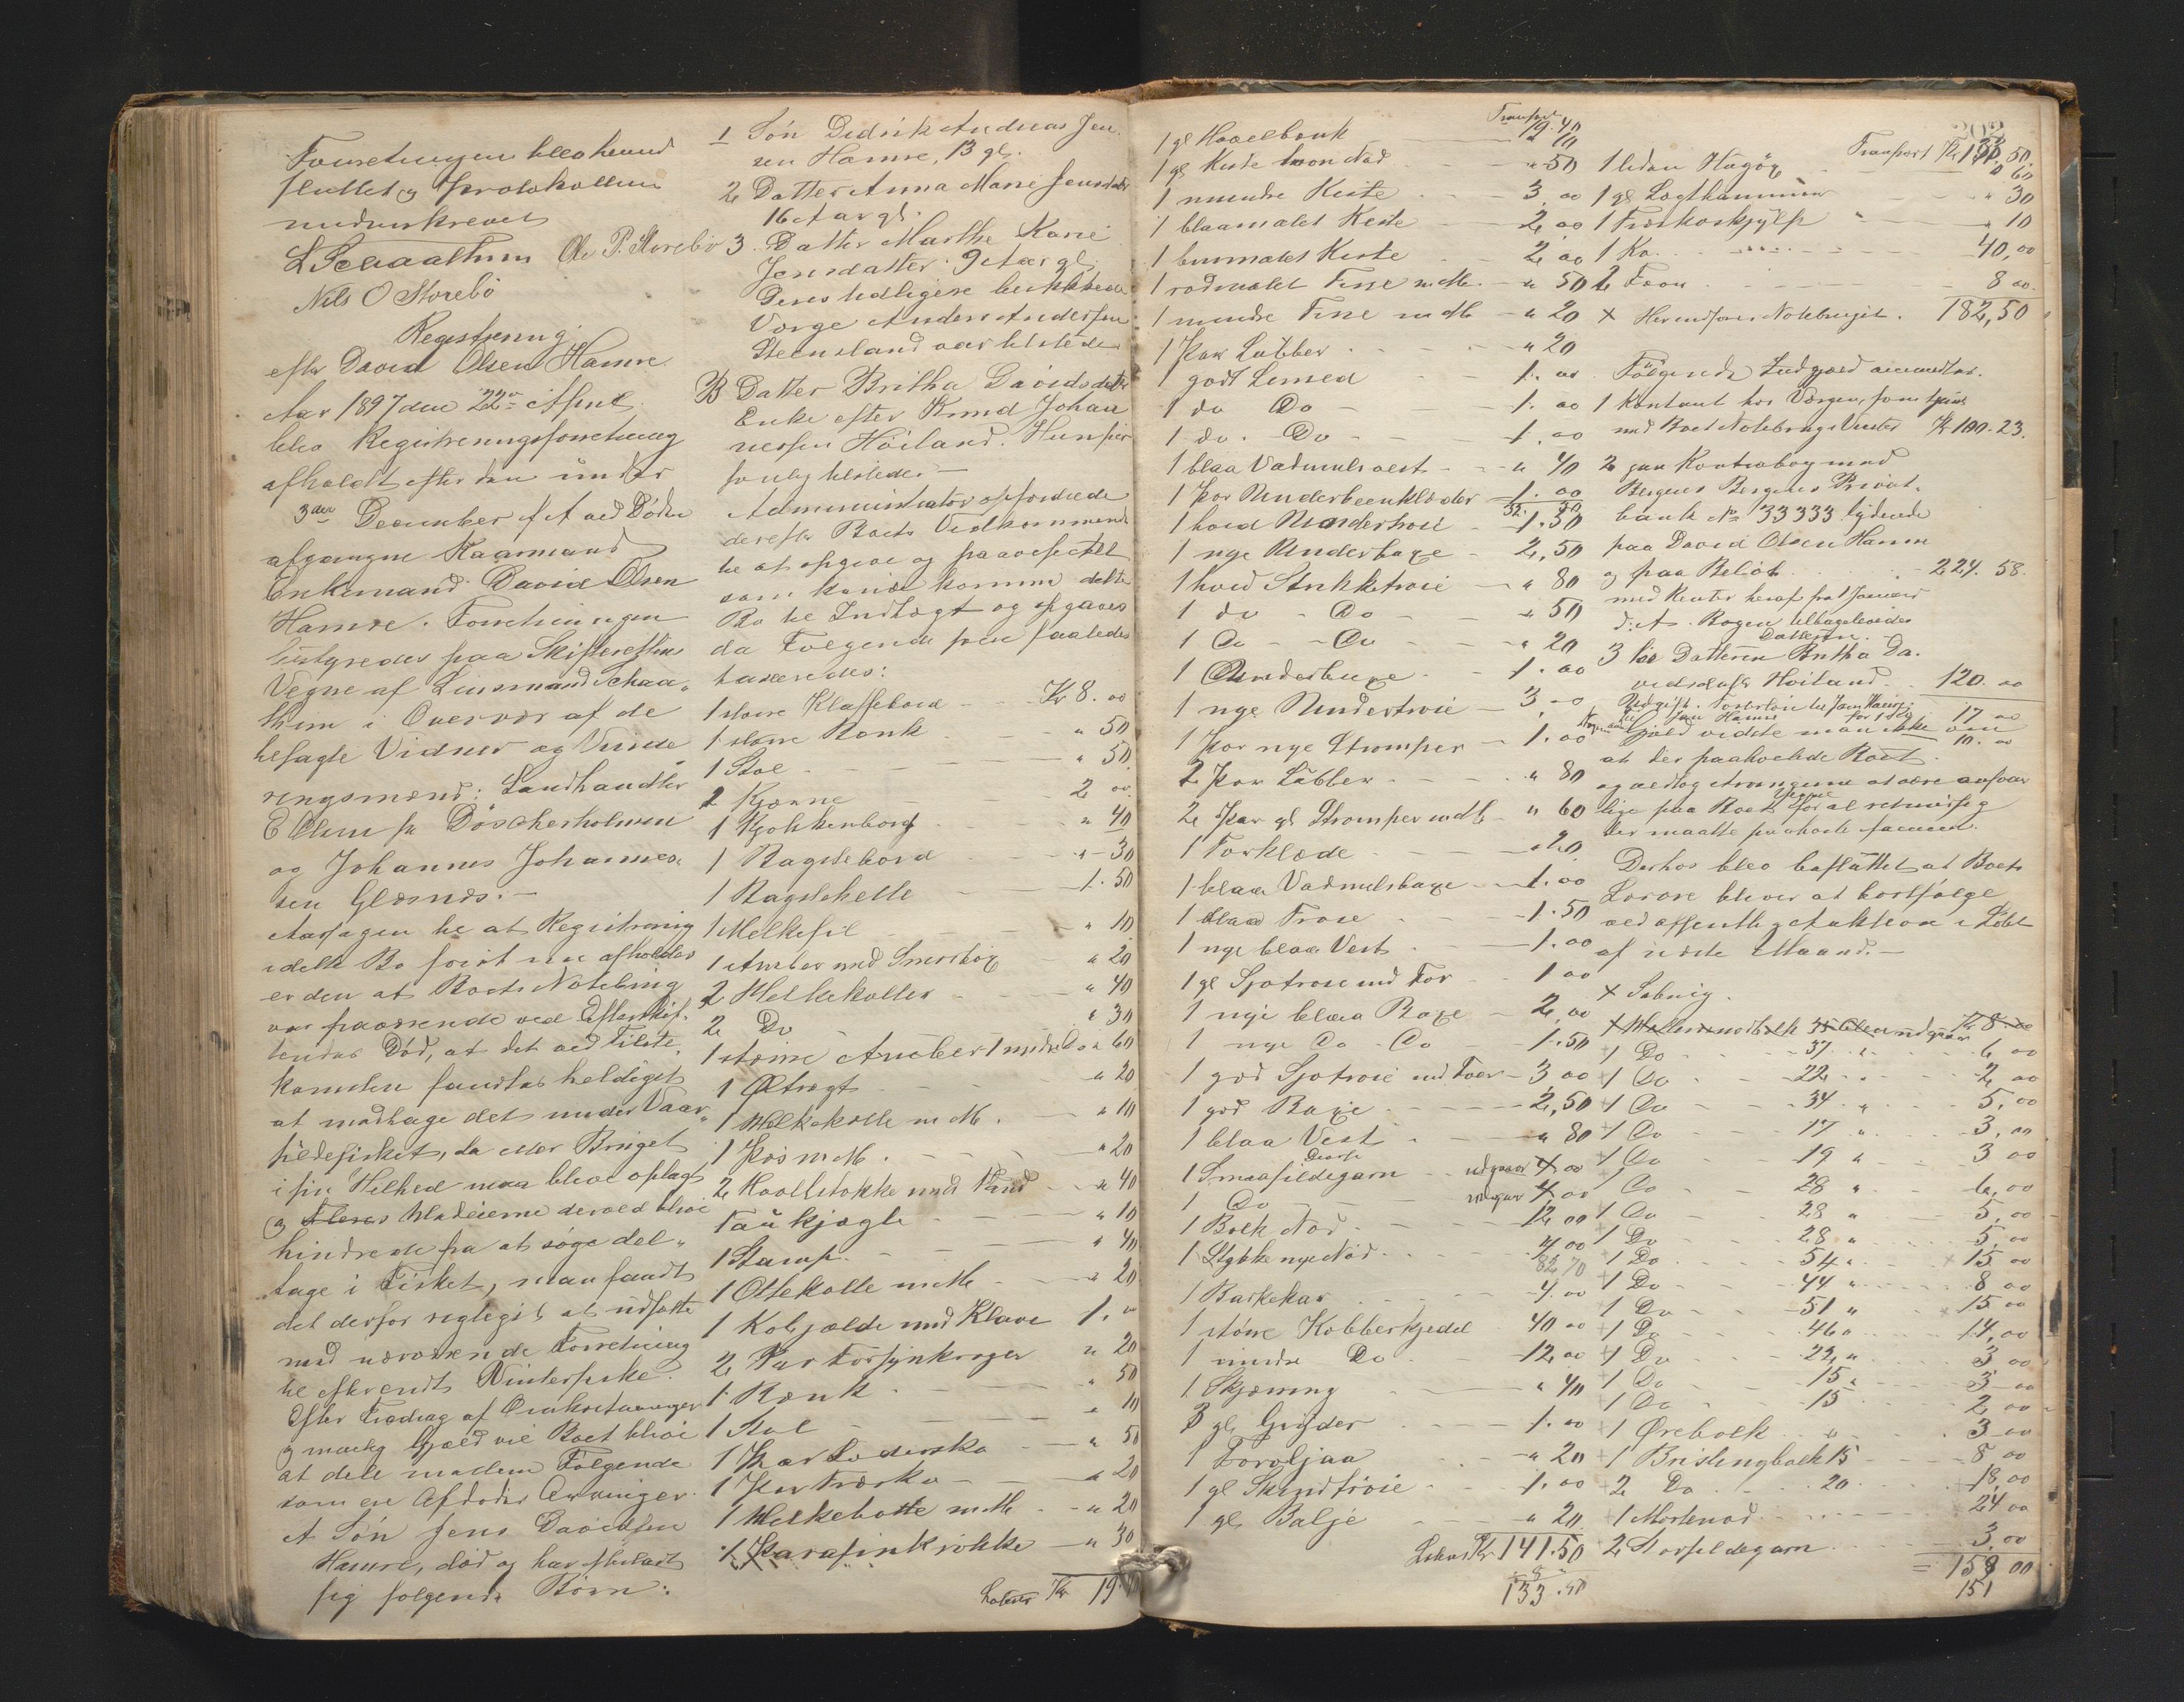 Forretningen blev hermed
sluttet og Protokollen
underskrevet
L Schaathun Ole P. Storebø
Nils O Storebö
Registrering
efter David Olsen Hamre.
Aar 1897 den 22de April
blev Registreringsforretning
afholdt efter den under
3die December f A ved Døden
afgangne Kaarmand
Enkemand David Olsen
Hamre. Forretningen
bestyredes paa Skifterettens
Vegne af Lensmand Schaa-
thun i Overvær af de
besagte Vidner og Vurde
ringsmænd: Landhandler
E Olsen fra Döskerholmen
og Johannes Johannes-
sen Glæsnæs.-
Aarsagen til at Registrering
i dette Bo først nu afholdes
er den at Boets Notebrug
var fraværende ved Efterskif-
tendes Død, at det ved Tilste
komsten fandtes heldigst
at modtage det under Vaar-
sildefisket, da eller Bruget
i sin Helhed maa blive oplagt
og Medeierne derved blive
hindrede fra at søge del-
tage i Fisket, man fandt
det derfor rigtigst at udsætte
med nærværende Forretning
til efterendt Vinterfiske.
Efter Fradrag af Omkostninger
og mulig Gjæld vil Boet blive
at dele mellem Følgende
som ere Afdødes Arvinger.
A Søn Jens Davidsen
Hamre, død og har efterladt
sig følgende Børn:
1 Sön Didrik Andreas Jen
sen Hamre, 13 gl.
2 Datter Anna Marie Jensdatter
16 Aar gl.
3. Datter Marthe Karie
Jensdatter 9 Aar gl.
Deres tidligere beskikkede
Værge Anders Andersen
Steensland var tilstede
B Datter Britha Davidsdatter
Enke efter Knud Johan
nessen Höiland. Hun per
sonlig tilstede.-
Administrator opfordrede
derefter Boets Vedkommende
til at opgive og paavise Alt
som kunde komme dette
Bo til Indtægt og opgaves
da Følgende som saaledes
taxeredes:
1 større Klaffebord - - Kr 8. 00
1 större Bænk - " 50
1 Stol - " 50
2 Kjærne - 2 00
1 Kjøkkenbord - " 40
1 Bagstebord - " 30
1 Bagstehelle - 1. 50
1 Melkesil - " 10
1 Amber med Smørbøx " 20
2 Melkekoller - " 40
2 Do " 30
1 større Amber 1 mindre Do " 60
1 Øltragt - " 20
1 Melkekolle m M. " 10
1 Kos m M. - " 20
2 Haallstokke med Vand - " 40
Taükjægle - " 10
1 Stamp. - " 40
1 Ottekolle m M - " 20
1 Kobjælde med Klave 1. 00
2 Par Torsynkroger " 20
1 Bænk - " 50
1 Stol - " 10
1 Par Lodersko - " 50
1 Par Træsko - " 20
1 Melkebøtte m M - " 20
1 Parafinkrükke - " 30
Lateris Kr 19.40
Transport
19.40
1 gl Høvelbænk " 10
1 gl Kiste hvori Nød - " 50
1 mindre Kiste - 3, 00
1 blaamalet Kiste - 2, 00
1 brunmalet Kiste - 2, 00
1 rødmalet Tine m M. - " 50
1 mindre Tine m M - " 20
1 Par Labber - " 20
1 godt Lerred - 1. 00
1 do Do - 1. 00
1 do. Do - 1. 00
1 blaa Vadmelsvest - - " 40
1 Par Underbeenklæder 1. 00
32. 30
1 hvid Undertroie - 1.50
1 nye Underbuxe - 2,50
1 hvid Strikketroie - " 80
1 do - Do - " 50
1 Do - Do - " 20
1 Underbuxe - 1. 00
1 nye Undertroie - 3, 00
1 Par nye Strømper - 1. 00
2 Par Labber - " 80
2 Par gl Strømper m M - " 60
1 Forklæde - " 20
1 blaa Vadmelsbuxe - 1. 00
1 blaa Troie - 1. 50
1 nye blaa Vest - 1. 00
1 gl Sjotroie med For - 1 00
1 nye blaa Buxe - 2, 00
1 nye Do - Do - 1. 50
1 god Sjotroie med Foer - 3, 00
1 god Buxe - 2, 50
1 blaa Vest - " 80
1 Smaasildegarn udgaar 4 00
1 Do udgaar 4 00
1 Bolk Nod - 12 00
1 Stykke nye Nod - 4 00
82 70
1 Barkekar - 4. 00
1 større Kobberkjedel 40 00
1 mindre Do - 12, 00
1 Skjæring - " 40
3 gl Gryder - 1. 00
1 Torvljaa - " 20
1 gl Skindtröie - 1. 00
1 gl Balje - " 20
Lateris Kr 141.50
8
133.50
202
Transport Kr 133, 50.
1 liden Hagøx - " 60
1 gl Lægthammer - " 30
1 Fiskeskjølp " - " 10
1 Ko - 40, 00
2 Faar - 8 00.
182,50
X Herudover Notebruget.
Følgende Indgjæld anmeldtes.
1 Kontant hos Værgen, som tjent
med Boets Notebrug i Vinter Kr 100. 23.
2 paa Kontrabog med
Bergens Bergens Privat-
bank No 33333 lydende
paa David Olsen Hamre
og paa Beløb - 224. 58.
med Renter heraf fra 1 Januar
d: A. Bogen tilbageleveredes
Datteren.-
3 hos Datteren Britha Da-
vidsdatter Höiland - 120. 00
17 00
Gjæld vidste man ikke om
10. 00
at der paahvilede Boet.
og vedtog Arvingerne at være ansvar
lige paa Boets Vegne for al retmæssig
der maatte paahvile samme.
Derhos blev besluttet at Boets
Løsøre bliver at bortsælge
ved offentlig Auktion i Løbet
af næste Maaned.-
X Solnig.
1 Do - 37 " - 6 00
1 Do - 22 " - 2 00
1 Do - 34 " - 5, 00
1 Do - 17 " - 3, 00
1 Do - 19 " - 3 00
1 Do - 28 " - 6, 00
1 Do - 28 " - 5, 00
1 Do - 28 " - 5, 00
1 Do - 54 " - 15, 00
1 Do - 44 " - 8 00
1 Do - 51 " - 15 00
1 Do - 46 " - 14, 00
1 Do - 22 " - 3 00
1 Do - 15 " - 3 00
1 Do - 15 - 2, 00
1 Ørebolk - " - 3 00
1 Brislingbolk 15 - 8 00
2 Do - 20 - 18, 00
1 Mortenod - 24 00
2 Storsildegarn - 3, 00
= 158 00
151